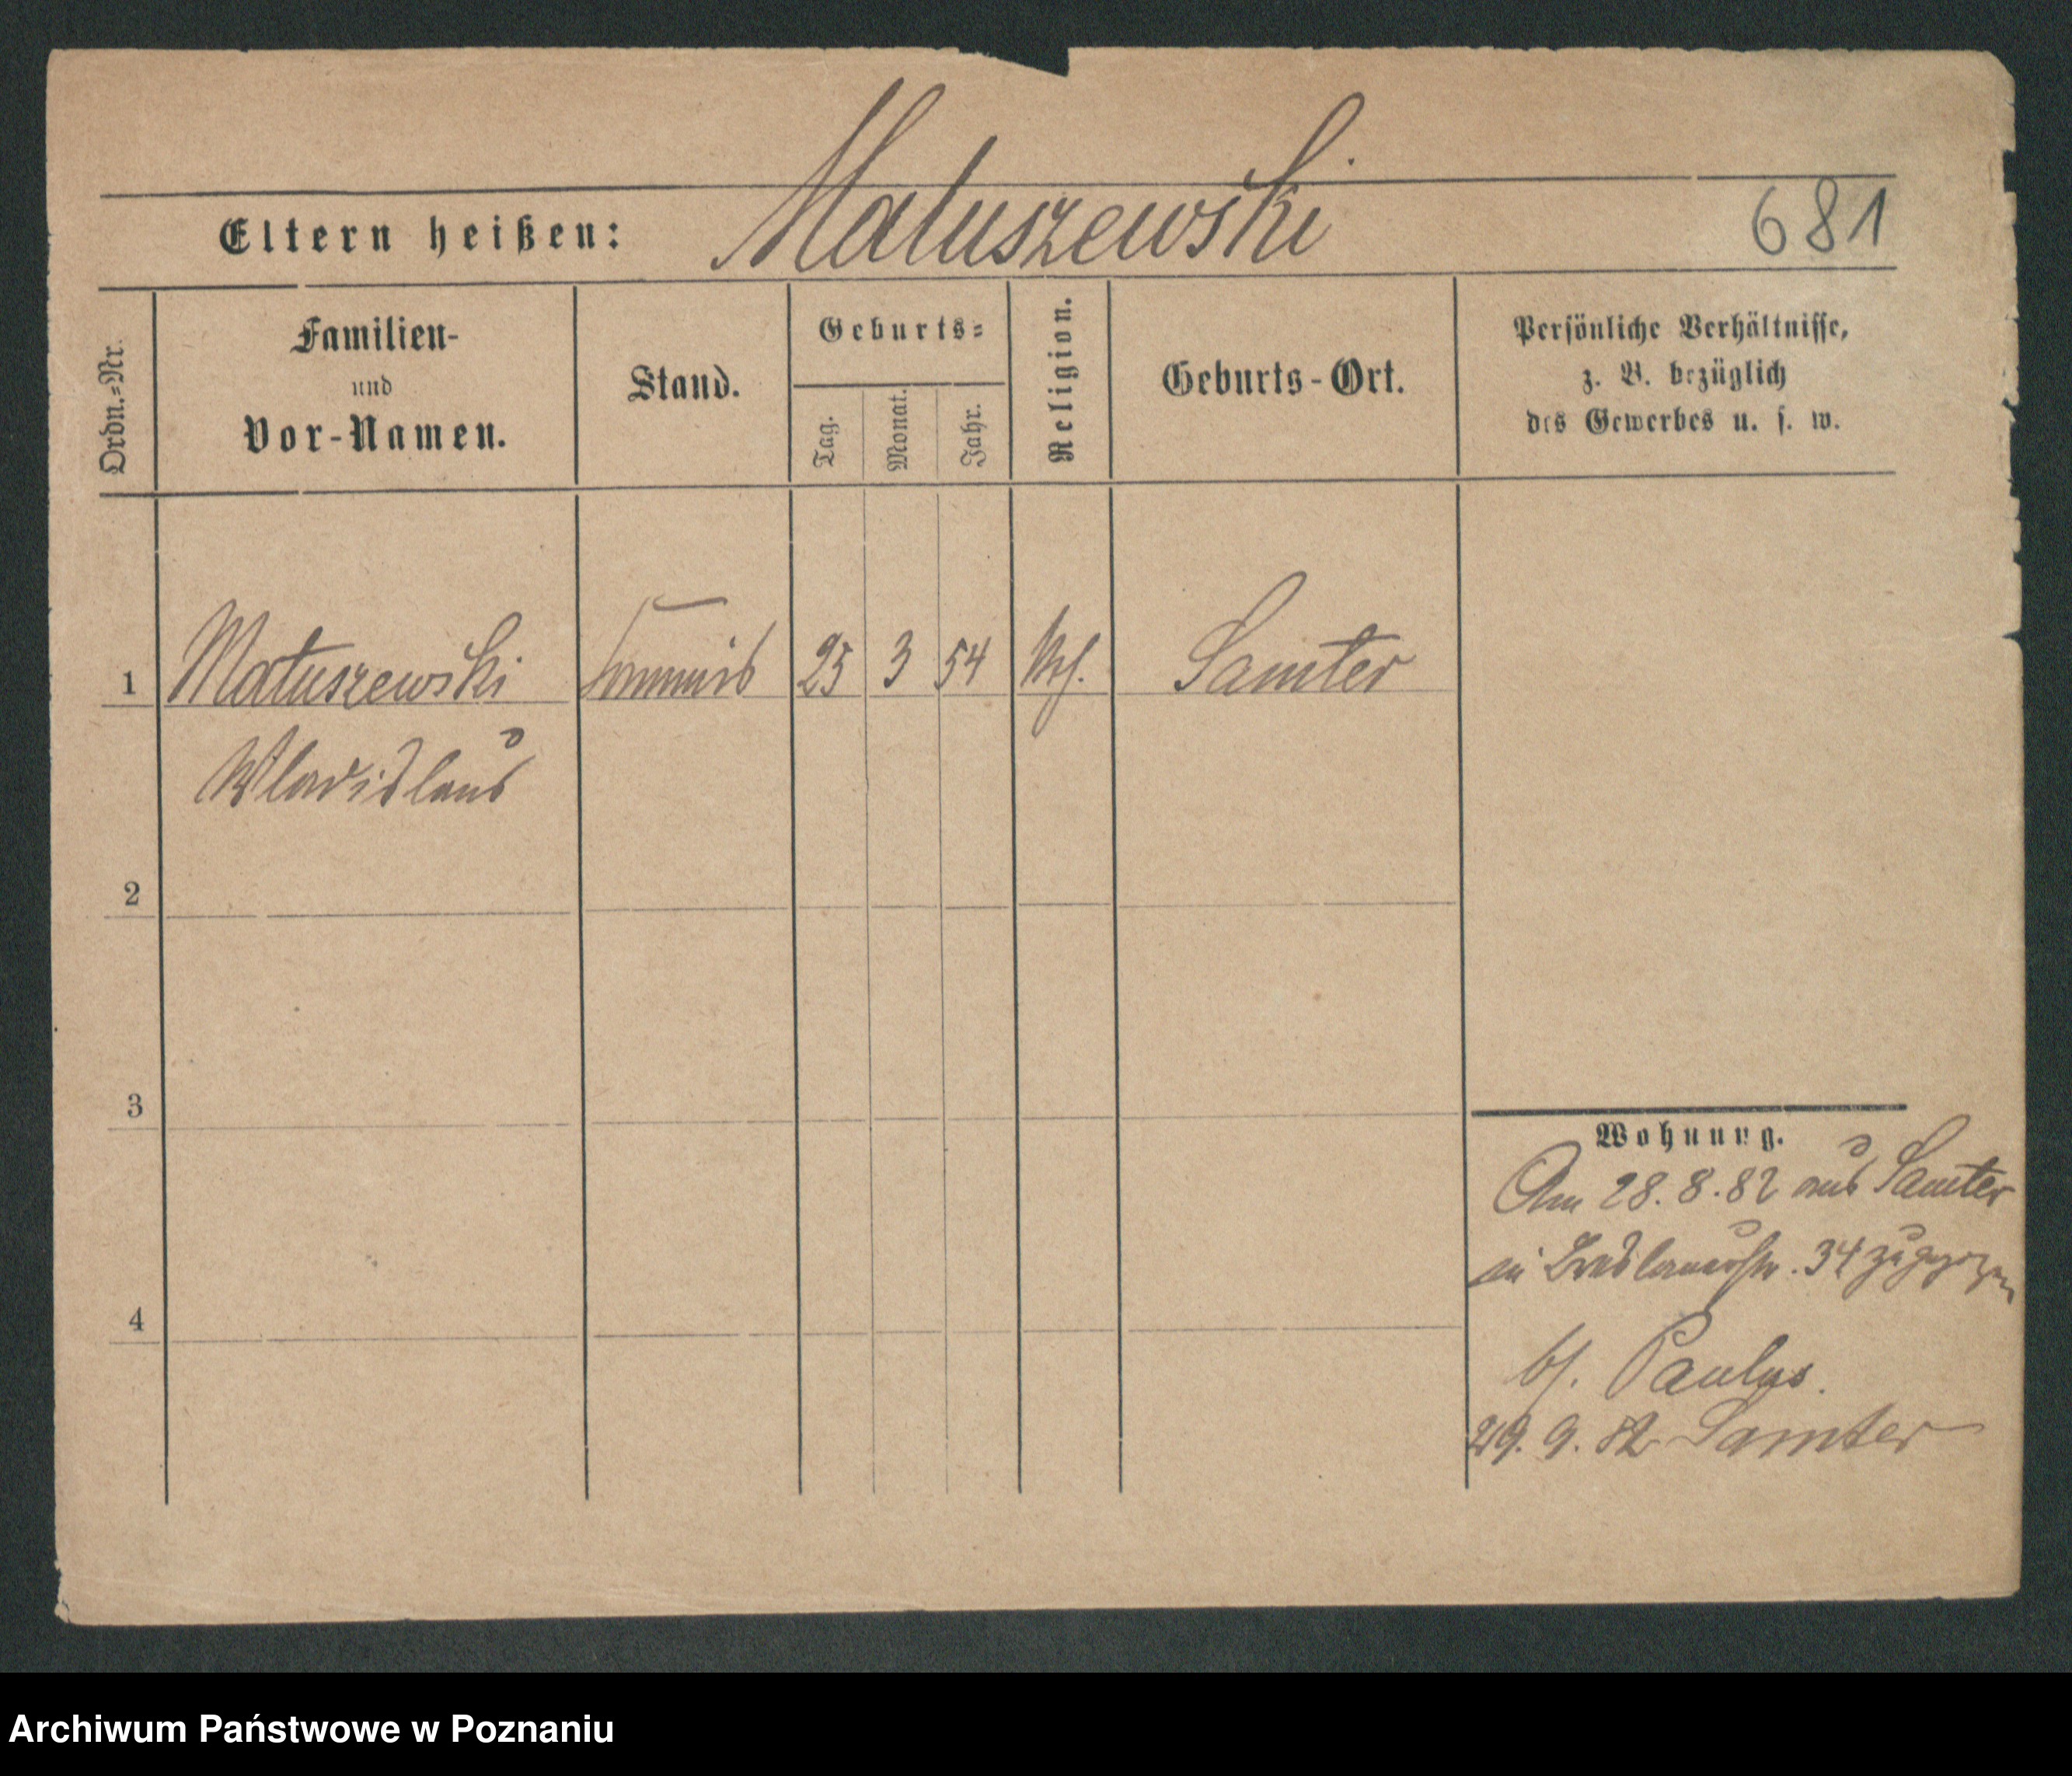 Matuszewski
Eltern heißen:
681
Ordn.=Nr.
Familien-
und
Vor-Namen.
Stand.
Geburts=
Tag.
Monat.
Jahr.
Religion.
Geburts-Ort.
Persönliche Verhältnisse,
z. B. bezüglich
des Gewerbes u. s. w.
1 Matuszewski Commis 25 3 54 Samter
Wladislaus
2
3
4
Wohnung.
Am 28. 8. 82 aus Samter
in Breslauerstr. 34 zugezogen
bei Paulus.
29. 9. 82 Samter
Archiwum Państwowe w Poznaniu